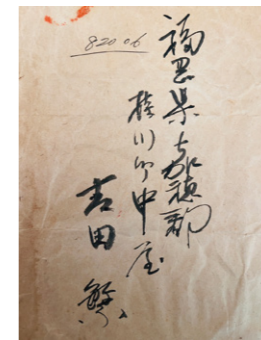 820 06
福岡県嘉穂郡
桂川町中屋
吉田 繁